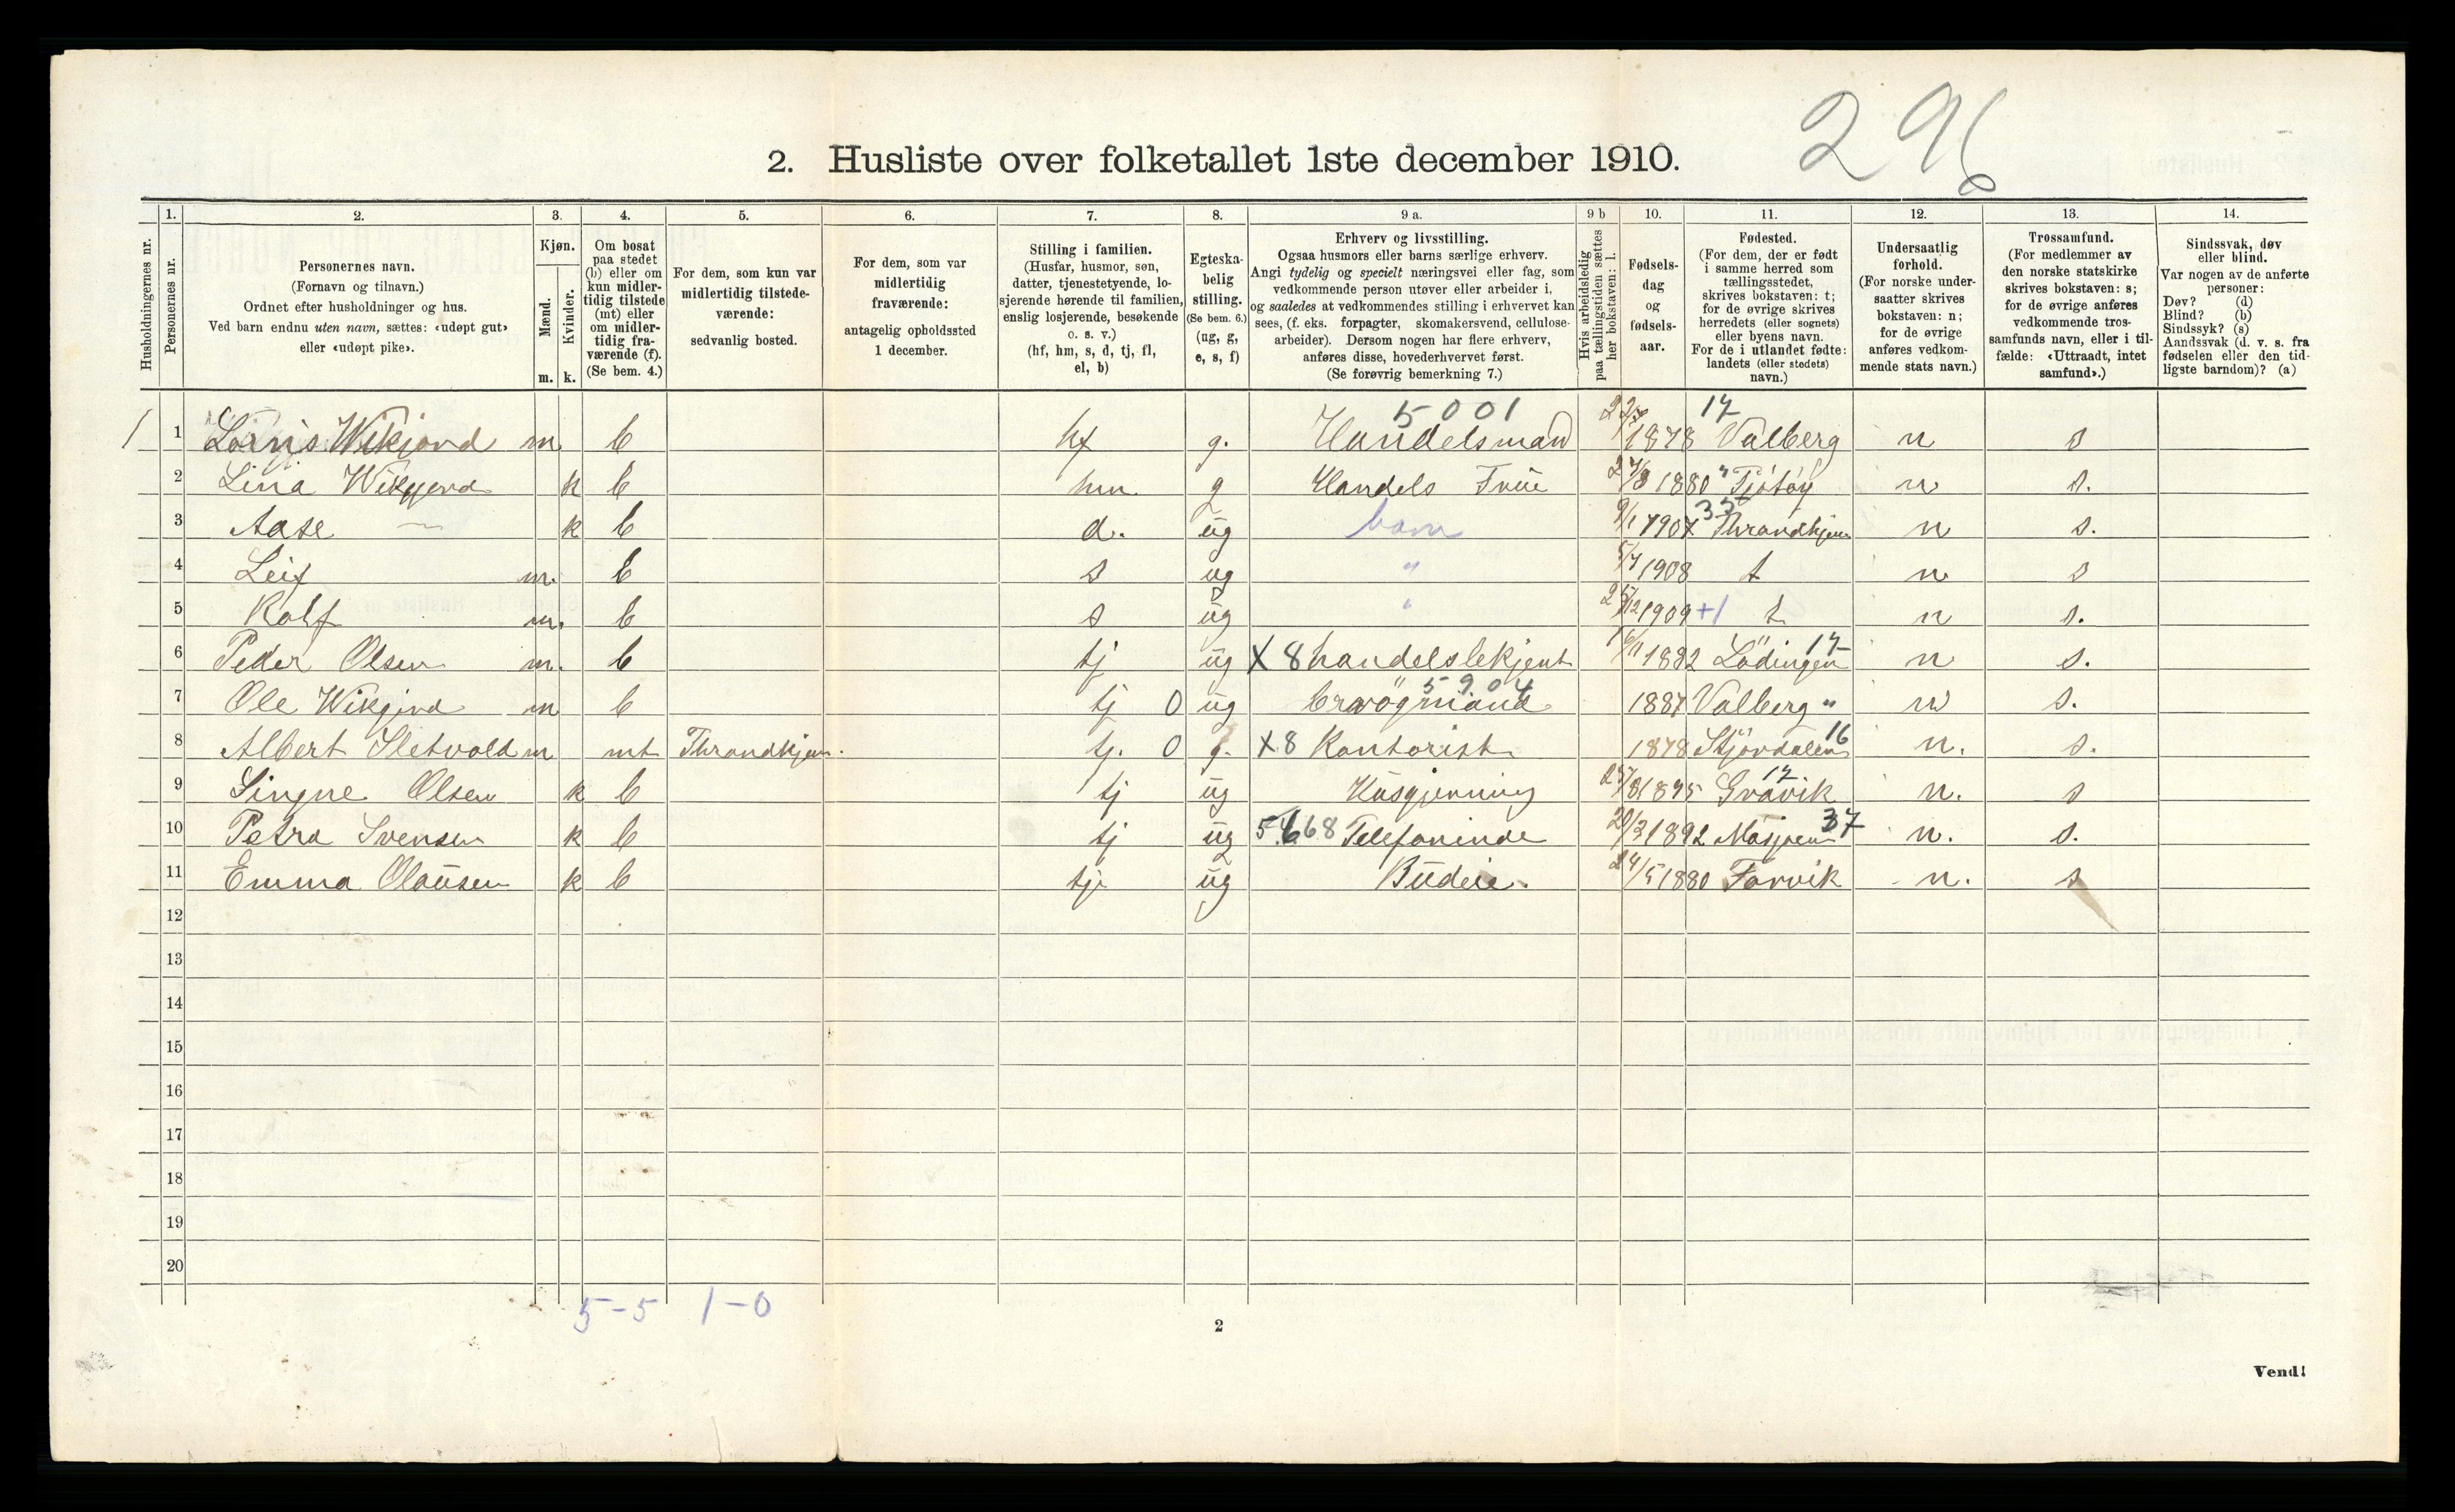 296
2. Husliste over folketallet 1ste december 1910.
Husholdningernes nr.
1.
Personernes nr.
2.
Personernes navn.
(Fornavn og tilnavn.)
Ordnet efter husholdninger og hus.
Ved barn endnu uten navn, sættes: «udøpt gut»
eller «udøpt pike».
3.
Kjøn.
Mænd.
Kvinder.
m. k.
4.
Om bosat
paa stedet
(b) eller om
kun midler-
tidig tilstede
(mt) eller
om midler-
tidig fra-
værende (f).
(Se bem. 4.)
5.
For dem, som kun var
midlertidig tilstede-
værende:
sedvanlig bosted.
6.
For dem, som var
midlertidig
fraværende:
antagelig opholdssted
1 december.
7.
Stilling i familien.
(Husfar, husmor, søn,
datter, tjenestetyende, lo-
sjerende hørende til familien,
enslig losjerende, besøkende
o. s. v.)
(hf, hm, s, d, tj, fl,
el, b)
8.
Egteska-
belig
stilling.
(Se bem. 6.)
(ug, g,
e, s, f)
9 a.
Erhverv og livsstilling.
Ogsaa husmors eller barns særlige erhverv.
Angi tydelig og specielt næringsvei eller fag, som
vedkommende person utøver eller arbeider i,
og saaledes at vedkommendes stilling i erhvervet kan
sees, (f. eks. forpagter, skomakersvend, cellulose-
arbeider). Dersom nogen har flere erhverv,
anføres disse, hovederhvervet først.
(Se forøvrig bemerkning 7.)
9 b
Hvis arbeidsledig
paa tællingstiden sættes
her bokstaven: l.
10.
Fødsels-
dag
og
fødsels-
aar.
11.
Fødested.
(For dem, der er født
i samme herred som
tællingsstedet,
skrives bokstaven: t;
for de øvrige skrives
herredets (eller sognets)
eller byens navn.
For de i utlandet fødte:
landets (eller stedets)
navn.)
12.
Undersaatlig
forhold.
(For norske under-
saatter skrives
bokstaven: n;
for de øvrige
anføres vedkom-
mende stats navn.)
13.
Trossamfund.
(For medlemmer av
den norske statskirke
skrives bokstaven: s;
for de øvrige anføres
vedkommende tros-
samfunds navn, eller i til-
fælde: «Uttraadt, intet
samfund».)
14.
Sindssvak, døv
eller blind.
Var nogen av de anførte
personer:
Døv? (d)
Blind? (b)
Sindssyk? (s)
Aandssvak (d. v. s. fra
fødselen eller den tid-
ligste barndom)? (a)
5001 17
1 1 Wikjord m b hf g. Handelsman 1878 Valberg n s
2 Lina Wikjord k b hm g Handels Frue 1880 " Tjötöy n s.
35
3 Aase — k b d. ug barn 9/1 1907 Thrandhjem n s.
4 Leif m. b s ug " 1908 t n s
5 Rolf m. b s ug " 1909 +1 t n s.
6 Peder Olsen m. b tj ug X8 handelsbekjent 16/11 1882 Lödingen 17 n s.
5904
7 Ole Wikjord m b tj 0 ug 1887 Valberg " n s.
8 Albert Sletvold m mt Thrandhjem. tj. 0 g. X8 Kontorist 1878 Stjördalen 16 n. s.
17
9 Singne Olsen k b tj ug Husgjerning 1895 Gravik n. s
10 Petra Svensen k b tj ug Telefoninde 20/3 1892 Mosjøen 37 n. s.
11 Emma Olausen k b tj ug Budeie. 24/5 1880 Forvik n. s
12
13
14
15
16
17
18
19
20
5-5 1-0
2
Vend!